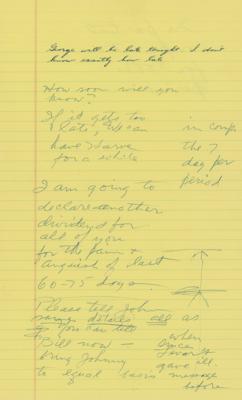 George will be late tonight. I don't
know exactly how late
How soon will you
know?
If it gets too
late, we can
have Steve
for a while
in comp
the 7
day per
period
I am going to
declare another
dividend for
all of you
for the pain &
anguish of last
60-75 days.
Please tell John
details all as
you can tell
Bill now —
bring Johnny
to equal basis
when
gave
message
before